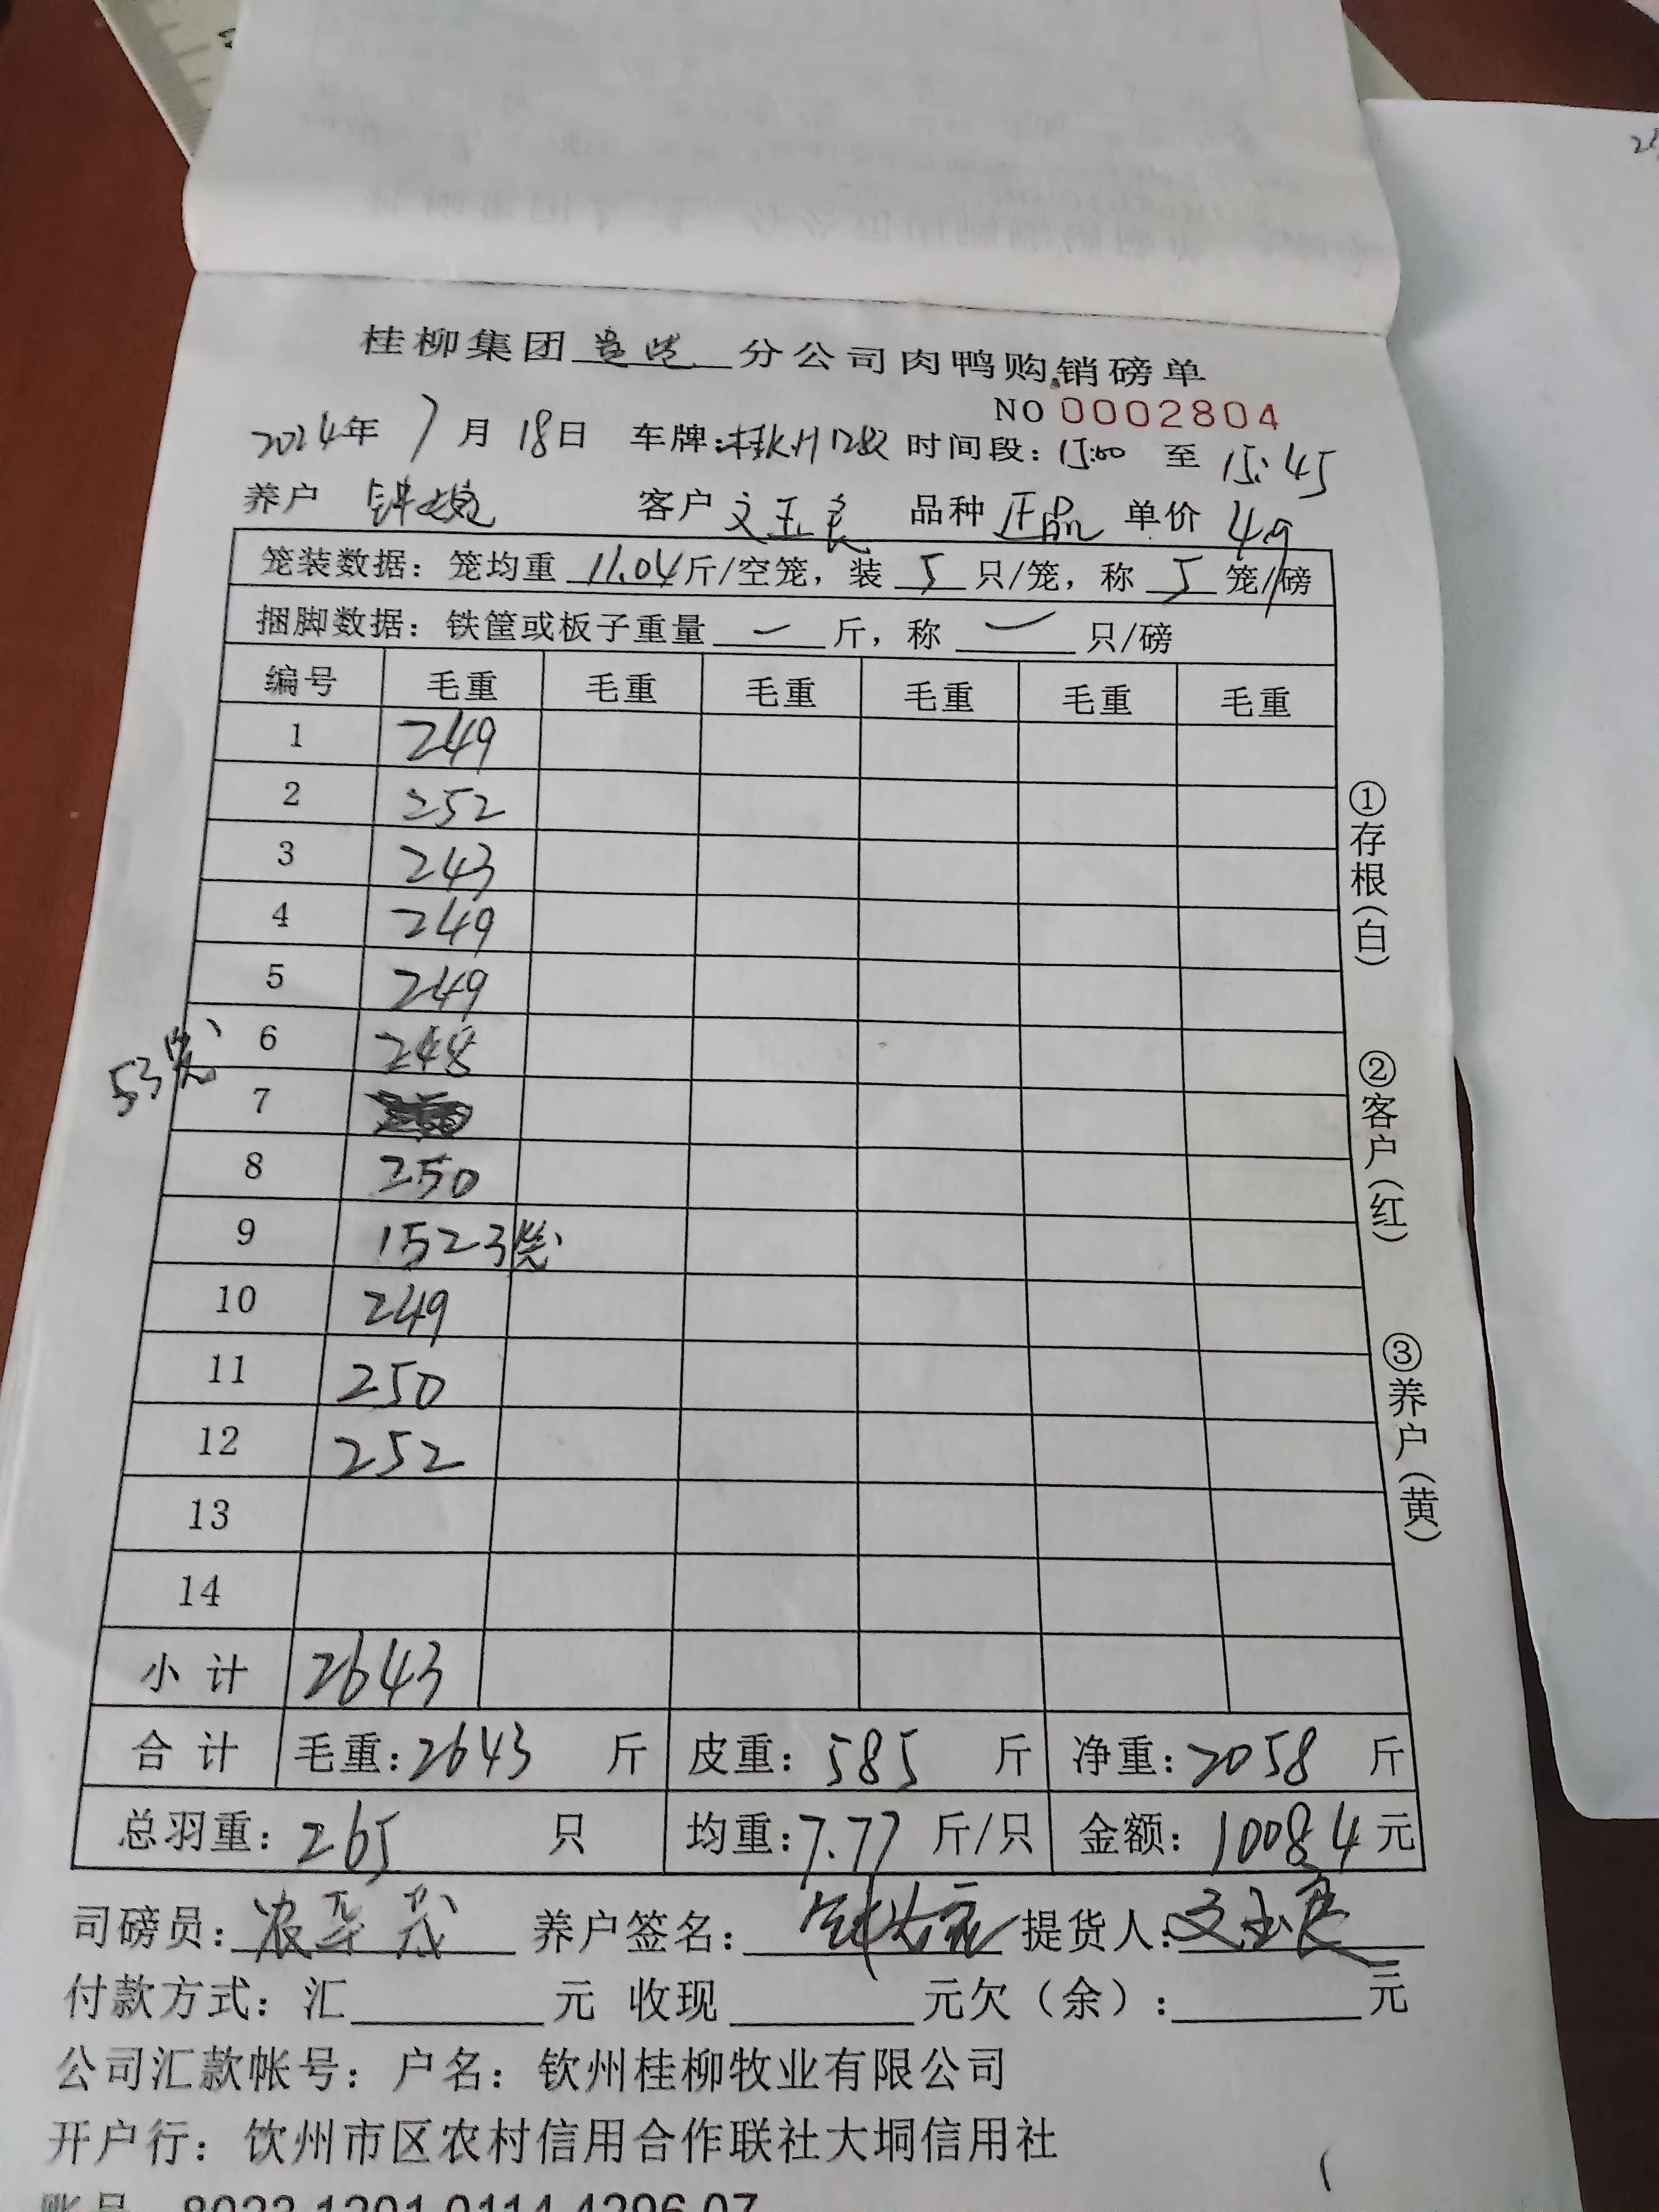 桂柳集团 分公司肉鸭购销磅单
NO 0002804
2024年 7月 18日 车牌: 时间段: 15:00 至 15:45
养户 客户 文玉良 品种 正品 单价 4.9
笼装数据: 笼均重 11.04 斤/空笼, 装 5 只/笼, 称 5 笼/磅
捆脚数据: 铁筐或板子重量 — 斤, 称 — 只/磅
编号 毛重 毛重 毛重 毛重 毛重 毛重
1 249
2 252
3 243
4 249
5 249
6 248
53笼
7
8 250
9 152 3笼
10 249
11 250
12 252
13
14
小计 2643
合计 毛重: 2643 斤 皮重: 585 斤 净重: 2058 斤
总羽重: 265 只 均重: 7.77 斤/只 金额: 10084 元
司磅员: 农华茂 养户签名: 提货人: 文玉良
付款方式: 汇 元 收现 元欠（余）: 元
公司汇款帐号: 户名: 钦州桂柳牧业有限公司
开户行: 饮州市区农村信用合作联社大垌信用社
①存根(白)
②客户(红)
③养户(黄)